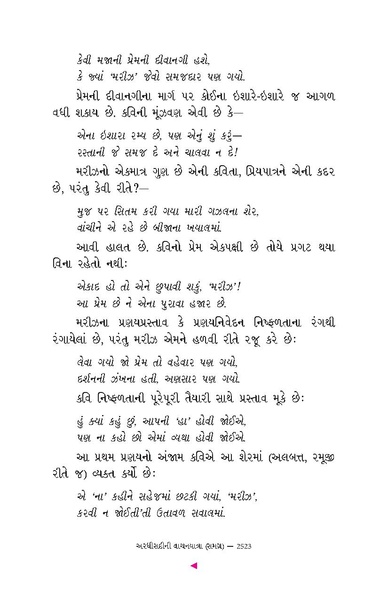 કેવી મજાની પ્રેમની દીવાનગી હશે,
કે જ્યાં ‘મરીઝ’ જેવો સમજદાર પણ ગયો.
પ્રેમની દીવાનગીના માર્ગ પર કોઈના ઇશારે-ઇશારે જ આગળ
વધી શકાય છે. કવિની મૂંઝવણ એવી છે કે—
એના ઇશારા રમ્ય છે, પણ એનું શું કરું—
રસ્તાની જે સમજ દે અને ચાલવા ન દે!
મરીઝનો એકમાત્ર ગુણ છે એની કવિતા, પ્રિયપાત્રને એની કદર
છે, પરંતુ કેવી રીતે?—
મુજ પર સિતમ કરી ગયા મારી ગઝલના શેર,
વાંચીને એ રહે છે બીજાના ખયાલમાં.
આવી હાલત છે. કવિનો પ્રેમ એકપક્ષી છે તોયે પ્રગટ થયા
વિના રહેતો નથી:
એકાદ હો તો એને છુપાવી શકું, ‘મરીઝ’!
આ પ્રેમ છે ને એના પુરાવા હજાર છે.
મરીઝના પ્રણયપ્રસ્તાવ કે પ્રણયનિવેદન નિષ્ફળતાના રંગથી
રંગાયેલાં છે, પરંતુ મરીઝ એમને હળવી રીતે રજૂ કરે છે:
લેવા ગયો જો પ્રેમ તો વહેવાર પણ ગયો,
દર્શનની ઝંખના હતી, અણસાર પણ ગયો.
કવિ નિષ્ફળતાની પૂરેપૂરી તૈયારી સાથે પ્રસ્તાવ મૂકે છે:
હું ક્યાં કહું છું, આપની ‘હા’ હોવી જોઈએ,
પણ ના કહો છો એમાં વ્યથા હોવી જોઈએ.
આ પ્રથમ પ્રણયનો અંજામ કવિએ આ શેરમાં (અલબત્ત, રમૂજી
રીતે જ) વ્યક્ત કર્યો છે:
એ ‘ના’ કહીને સહેજમાં છટકી ગયાં, ‘મરીઝ’,
કરવી ન જોઈતી’તી ઉતાવળ સવાલમાં.
અરધીસદીની વાચનયાત્રા (સમગ્ર) — 2523